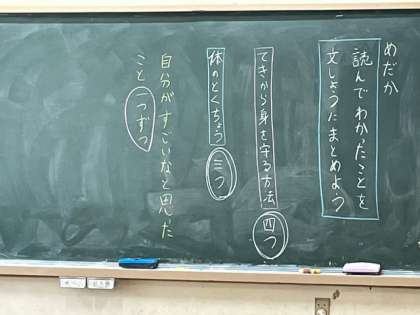 めだか
読んでわかったことを
文しょうにまとめよう
てきから身を守る方法 四つ
体のとくちょう 三つ
自分がすごいなと思った
こと 一つずつ